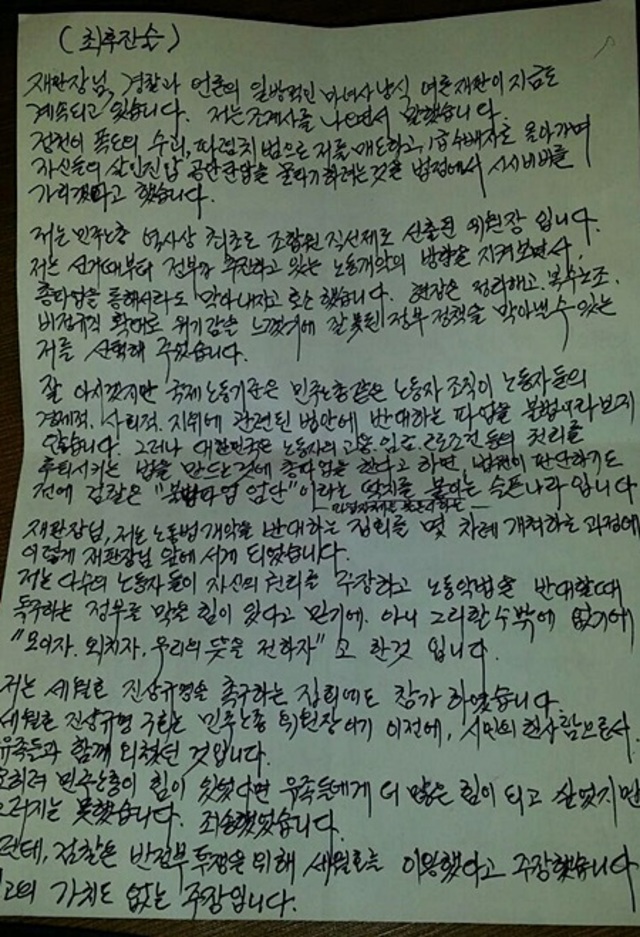 (최후진술)
재판장님, 경찰과 언론의 일방적인 마녀사냥식 여론재판이 지금도
계속되고 있습니다. 저는 조계사를 나오면서 말했습니다.
저천이 폭도의 수괴, 파렴치범으로 저를 매도하고, 1급수배자로 몰아가며
자신들의 살인진압 공안탄압을 물타기하려는 것은 법정에서 시시비비를
가리겠다고 했습니다.
저는 민주노총 역사상 최초로 조합원 직선제로 선출된 위원장 입니다.
저는 선거때부터 정부가 추진하고 있는 노동개악의 방향을 지켜보면서,
총파업을 통해서라도 막아내자고 호소 했습니다. 현장은 정리해고, 복수노조,
비정규직 확대로 위기감을 느꼈기에 잘못된 정부정책을 막아낼 수 있는
저를 선택해 주었습니다.
잘 아시겠지만 국제노동기준은 민주노총같은 노동자 조직이 노동자들의
경제적, 사회적, 지위에 관련된 법안에 반대하는 파업을 불법이라 보지
않습니다. 그러나 대한민국은 노동자의 고용·임금·근로조건 등의 권리를
후퇴시키는 법을 만드는것에 총파업을 한다고 하면, 법원이 판단하기도
전에 검찰은 "불법파업 엄단"이라는 딱지를 붙이는 슬픈나라 입니다
재판장님, 저는 노동법개악을 반대하는 집회를 몇 차례 개최하는 과정에
이렇게 재판장님 앞에 서게 되었습니다.
저는 다수의 노동자들이 자신의 권리를 주장하고 노동악법을 반대할때
독주하는 정부를 막을 힘이 있다고 믿기에, 아니 그리할수밖에 없기에
"모이자, 외치자, 우리의 뜻을 전하자"고 한것 입니다.
저는 세월호 진상규명을 촉구하는 집회에도 참가 하였습니다.
세월호 진상규명 구호는 민주노총 위원장이기 이전에, 시민의 한사람으로서,
유족들과 함께 외쳤던 것입니다.
오히려 민주노총이 힘이 있었다면 유족들에게 더 많은 힘이 되고 싶었지만
그러지는 못했습니다. 죄송했었습니다.
런데, 검찰은 반정부투쟁을 위해 세월호를 이용했다고 주장했습니다
고의 가치도 없는 주장입니다.